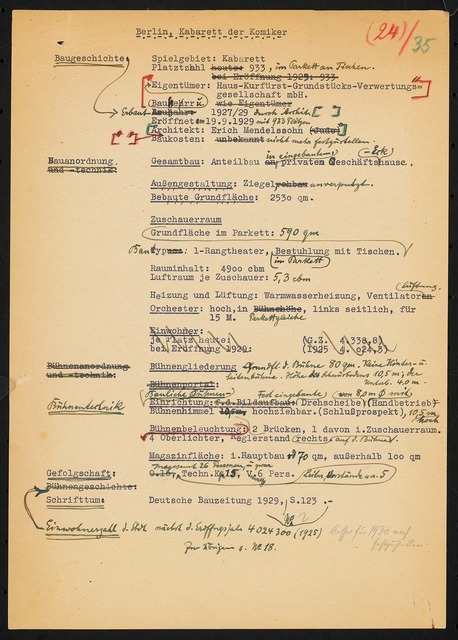 Berlin, Kabarett der Komiker
(24)/35
Baugeschichte Spielgebiet: Kabarett
Platzzahl heute: 933, im Parkett an Tischen.
bei Eröffnung 1929: 933
Eigentümer: Haus-Kurfürst-Grundstücks-Verwertungs=
gesellschaft mbH.
Bauherr u. wie Eigentümer
Erbaut Baujahr: 1927/29 durch Archit.
Eröffnet: 19.9.1929 mit 933 Plätzen
Architekt: Erich Mendelssohn (Jude)
Baukosten: unbekannt nicht mehr festzustellen.
in eingebautem (-Eck)
Bauanordnung und -technik: Gesamtbau: Anteilbau an privatem Geschäftshause.
Außengestaltung: Ziegelrohbau unverputzt.
Bebaute Grundfläche: 2530 qm.
Zuschauerraum
Grundfläche im Parkett: 590 qm
Bautypus: 1-Rangtheater, Bestuhlung mit Tischen.
im Parkett
Rauminhalt: 4900 cbm
Luftraum je Zuschauer: 5,3 cbm
lüftung.
Heizung und Lüftung: Warmwasserheizung, Ventilatoren
Orchester: hoch, in Bühnenhöhe, links seitlich, für
15 M. Parketthöhe
Einwohner:
je Platz heute: (G.Z. 4.338,8)
bei Eröffnung 1929: (1925 4.024,3)
Bühnenanordnung und -technik: Bühnengliederung Grundfl. d. Bühne 80 qm. Keine Hinter- u.
Seitenbühne. Höhe des Schnürbodens 10,5 m; der
Unterb. 4.0 m.
Bühnenportal:
Bühnentechnik
Einrichtung: Bildaufbau (Drehscheibe) (Handbetrieb)
Bühnenhimmel 10,5m hochziehbar. (Schlußprospekt), 10,5 m hoch
Bühnenbeleuchtung: 2 Brücken, 1 davon i.Zuschauerraum.
4 Oberlichter, Reglerstand rechts auf d. Bühne.
Magazinfläche: i.Hauptbau 70 qm, außerhalb 100 qm
insgesamt 26 Personen, u. zwar
Gefolgschaft: Techn.K. 15, V. 6 Pers.
Bühnengeschichte:
Schrifttum: Deutsche Bauzeitung 1929, S.123 .-
Einwohnerzahl d. Stadt nächst d. Eröffngsjahr 4 024 300 (1925)
Zu übrigen s. Nr 18.